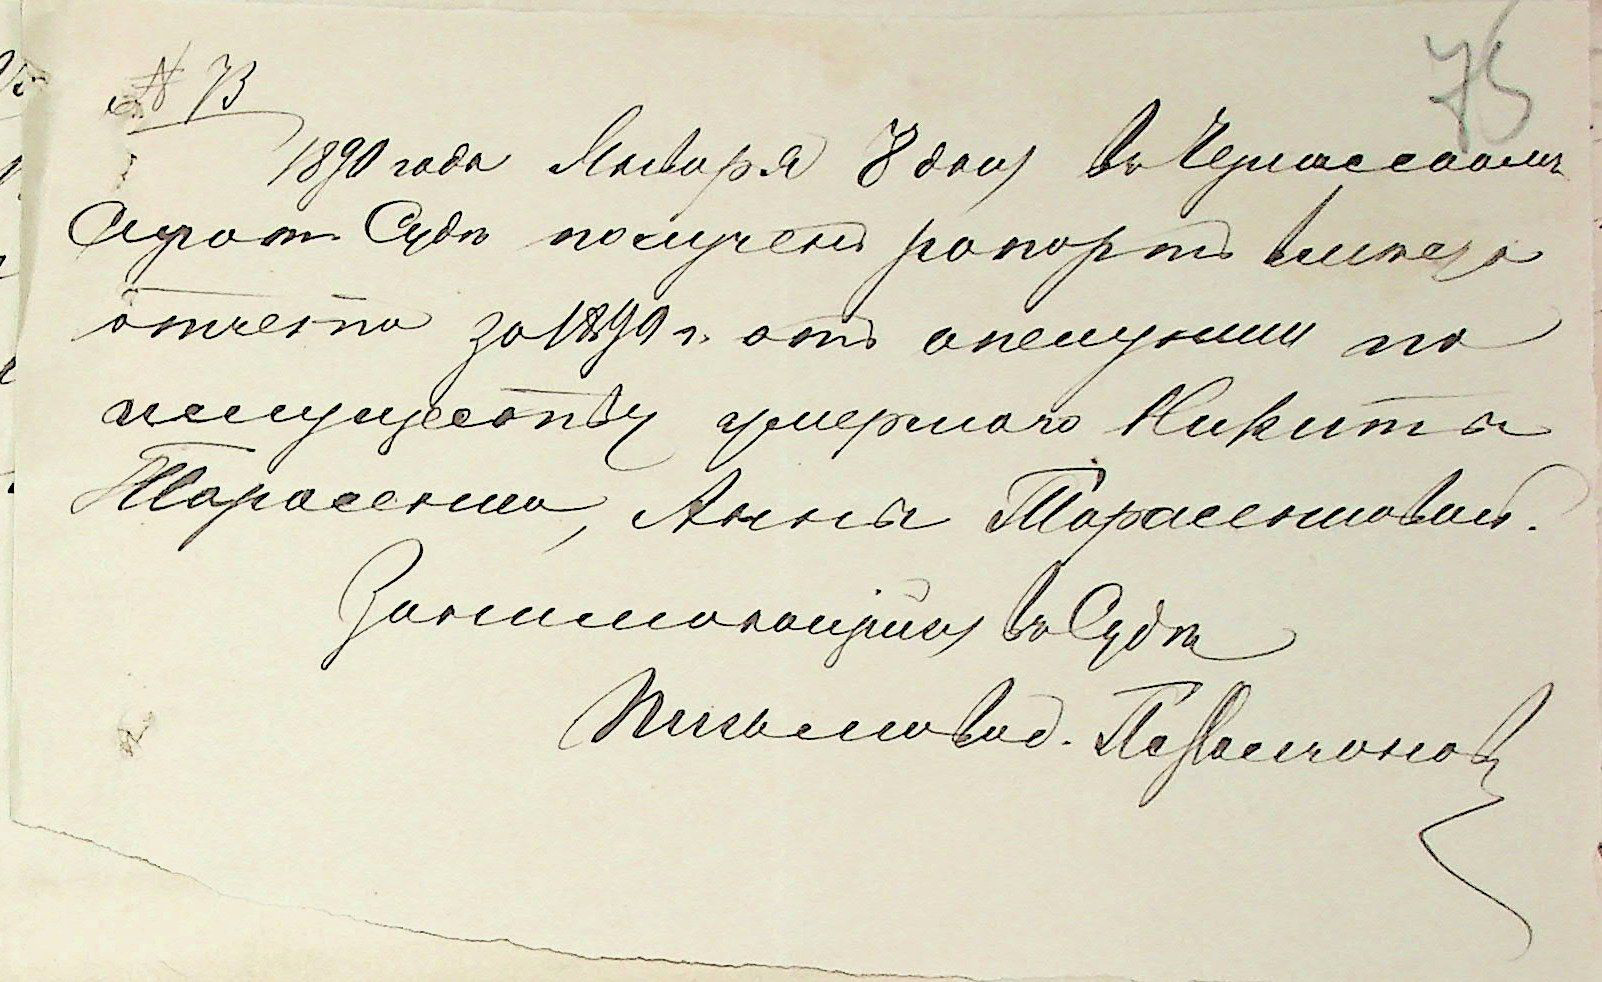 75
№ 73
1890 года Января 8 дня въ Черкасскомъ
Сирот. Судѣ полученъ рапортъ вместо
отчета за 1889 г. отъ опекунши по
имуществу умершаго Никиты
Тарасенка, Анны Тарасенковой.
Занимающійся въ Судѣ
Письмовод.